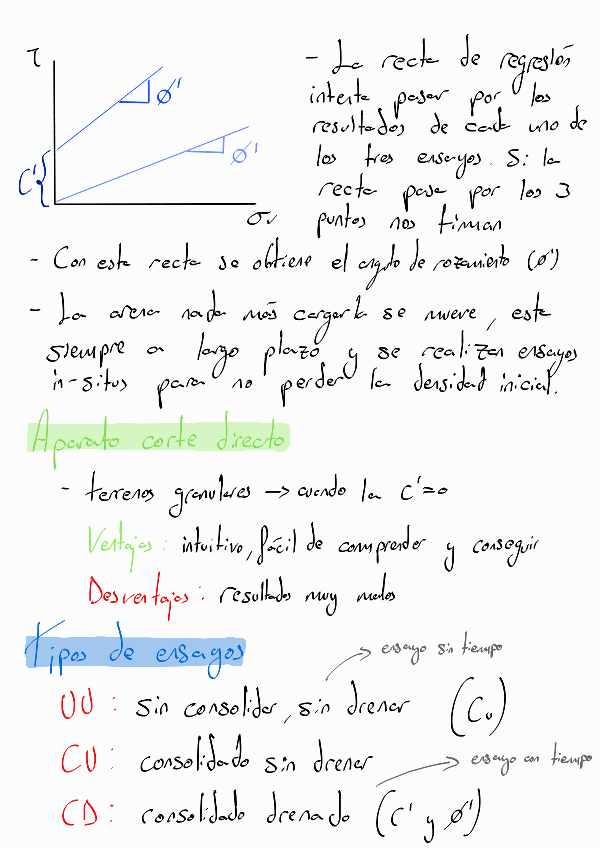 τ
- La recta de regresión
intenta pasar por los
resultados de cada uno de
los tres ensayos. Si la
recta pasa por los 3
puntos nos timan
ϕ'
ϕ'
C'
σv
- Con esta recta se obtiene el angulo de rozamiento (ϕ')
- La arena nada más cargarla se mueve, esta
siempre a largo plazo y se realizan ensayos
in-situs para no perder la densidad inicial.
Aparato corte directo
- terrenos granulares → cuando la C'=0
Ventajas: intuitivo, fácil de comprender y conseguir
Desventajas: resultados muy malos
Tipos de ensayos
ensayo sin tiempo
UU: sin consolidar, sin drenar (Cu)
CU: consolidado sin drenar
ensayo con tiempo
CD: consolidado drenado (C' y ϕ')